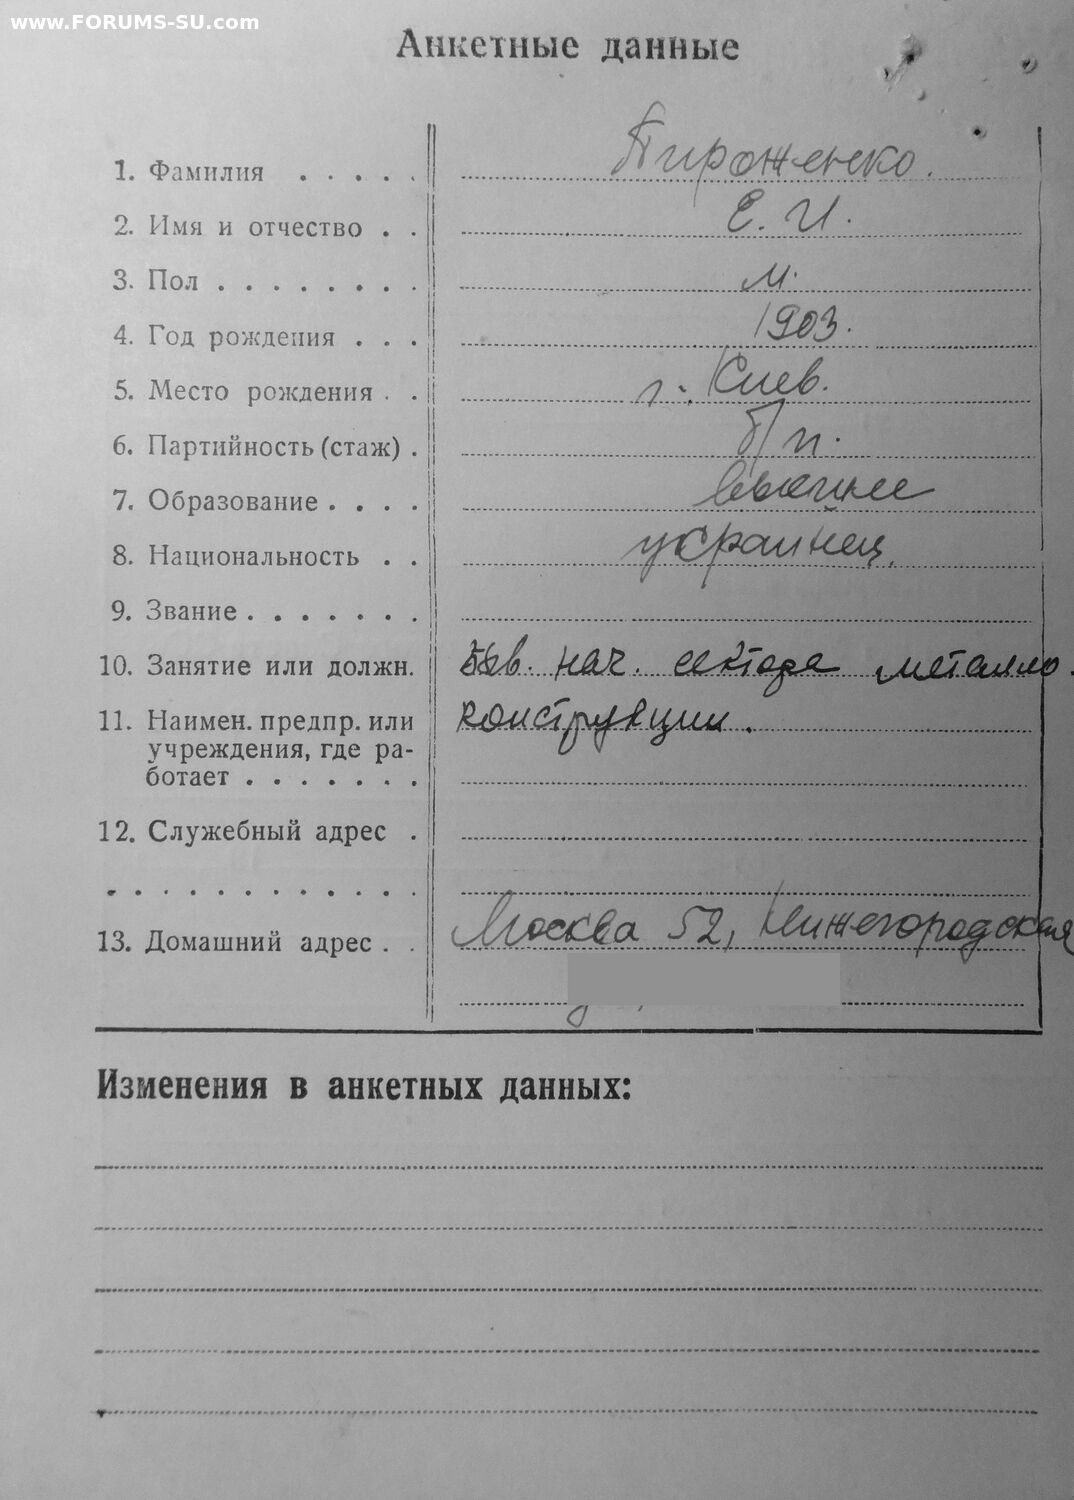 www.FORUMS-SU.com
Анкетные данные
1. Фамилия . . . . . Пироженко.
2. Имя и отчество . . Е. И.
3. Пол . . . . . . . . м.
4. Год рождения . . . 1903.
5. Место рождения . . г. Киев.
6. Партийность (стаж) . б/п.
7. Образование . . . . высшее
8. Национальность . . украинец.
9. Звание . . . . . . .
10. Занятие или должн. быв. нач. сектора металло-
11. Наимен. предпр. или конструкции.
учреждения, где ра-
ботает . . . . . . .
12. Служебный адрес .
. . . . . . . . . . . .
13. Домашний адрес . . Москва 52, Нижегородская
Изменения в анкетных данных: